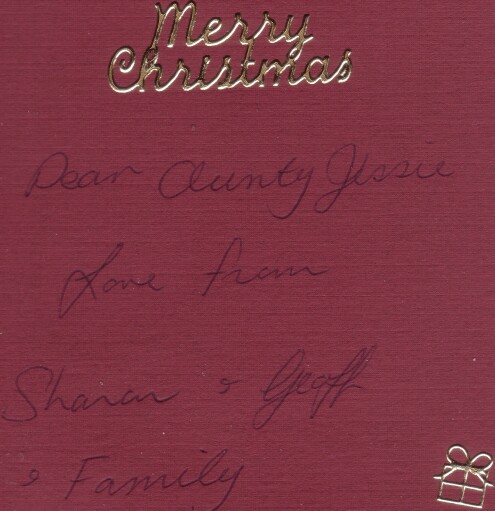 Merry
Christmas
Dear Aunty Jessie
Love from
Sharon & Geoff
& Family